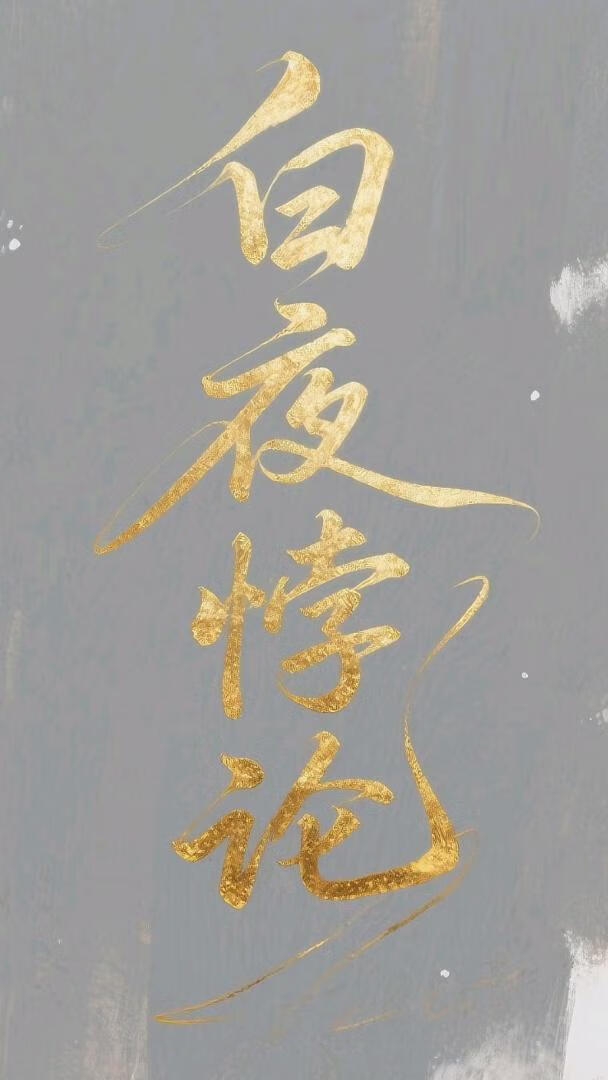 白夜悖论